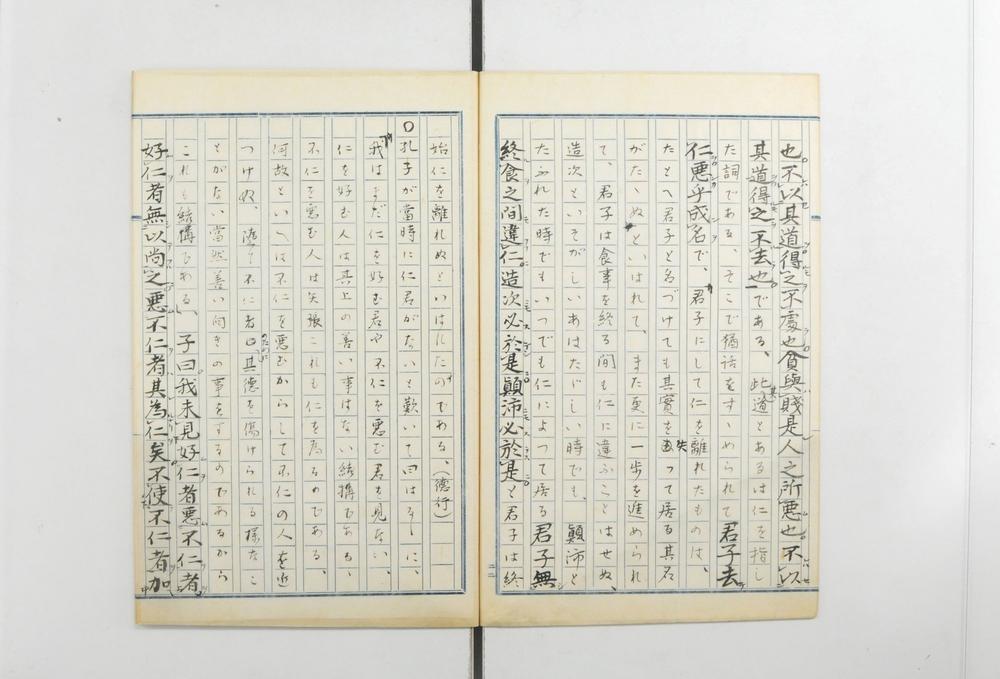 也不以其道得之不處也貧與賤是人之所惡也不以
其道得之不去也である、此道とあるは仁を指し
た詞である、そこで猶話をすゝめられて君子去
仁惡乎成名で、君子にして仁を離れたものは、
たとへ君子と名づけても其實を失つて居る其名
がたゝぬといはれて、また更に一歩を進められ
て、君子は食事を終る間も仁に違ふことはせぬ、
造次といそがしいあはたゞしい時でも、顚沛と
たふれた時でもいつでも仁によつて居る君子無
終食之間違仁造次必於是顚沛必於是と君子は終
二二
始仁を離れぬといはれたのである、(德行)
孔子が當時に仁君がないと歎いて曰はるゝに、
我はまだ仁を好む君や不仁を惡む君を見ない、
仁を好む人は其上の善い事はない結構である、
不仁を惡む人は矢張これも仁を爲るのである、
何故といへは不仁を惡むからして不仁の人を近
つけぬ、不仁者に其德を傷けられる樣なこ
とがない當然善い向きの事をするのであるから
これも結構である、子曰我未見好仁者惡不仁者
好仁者無以尚之惡不仁者其為仁矣不使不仁者加